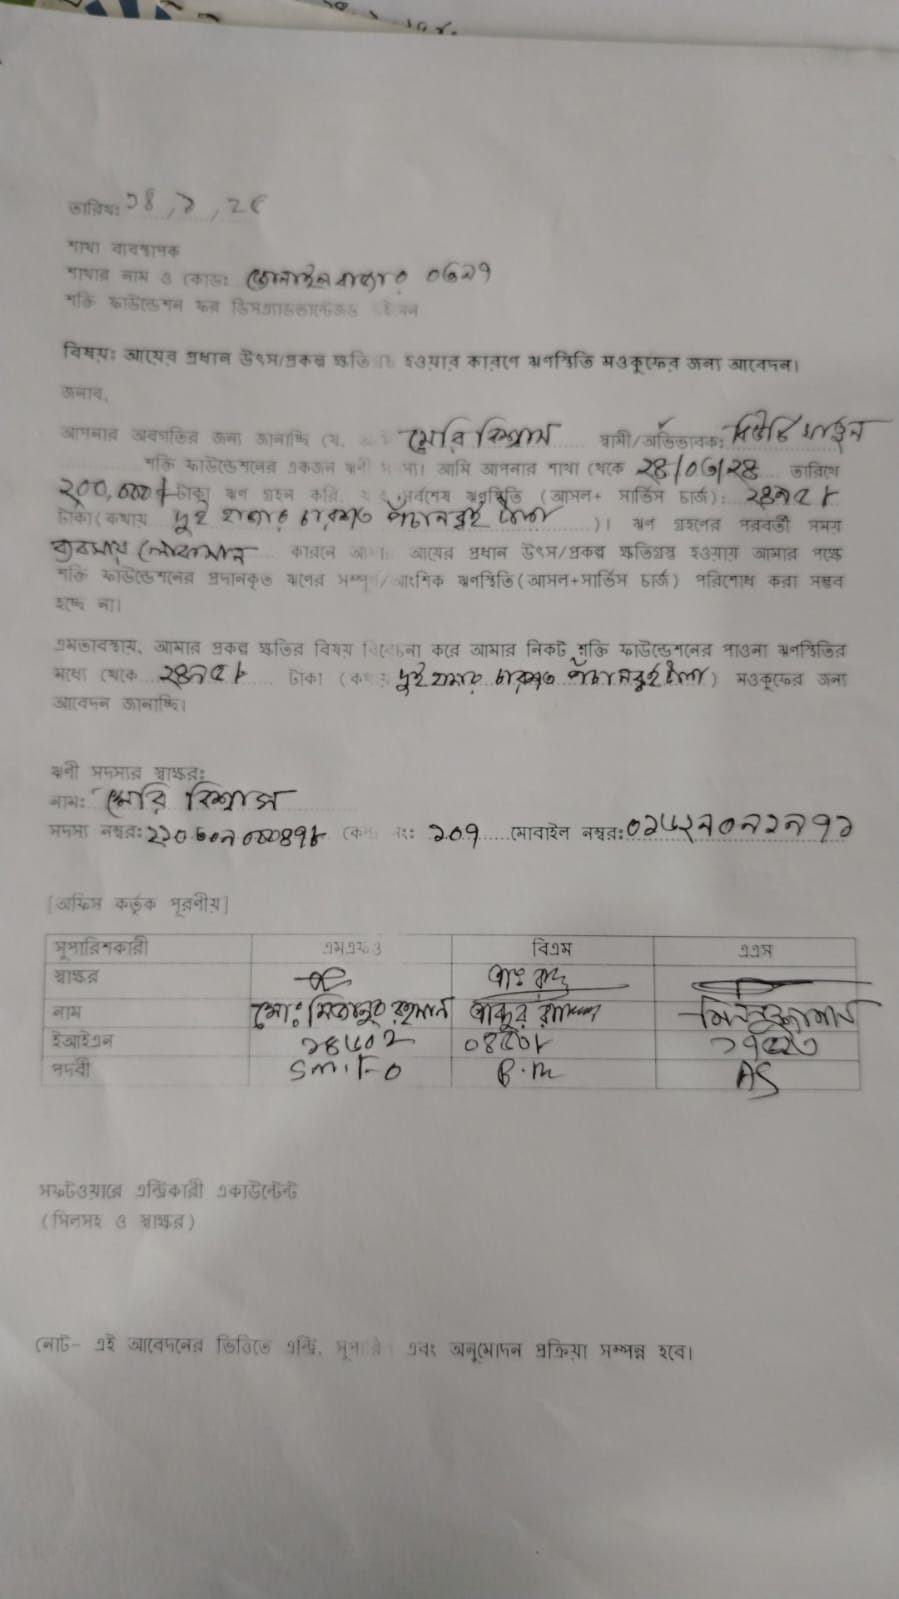 তারিখ: ১৪, ১, ২৫
শাখা ব্যবস্থাপক
শাখার নাম ও কোড: জোনাইল বাজার ০৬২৭
শক্তি ফাউন্ডেশন ফর ডিসএ্যাডভান্টেজড উইমেন
বিষয়: আয়ের প্রধান উৎস/প্রকল্প ক্ষতিগ্রস্থ হওয়ার কারণে ঋণস্থিতি মওকুফের জন্য আবেদন।
জনাব,
আপনার অবগতির জন্য জানাচ্ছি যে, মেরি বিশ্বাস স্বামী/অভিভাবক:
শক্তি ফাউন্ডেশনের একজন ঋণী সদস্য। আমি আপনার শাখা থেকে ২৪/০৬/২৪ তারিখে
২০০,০০০/- টাকা ঋণ গ্রহন করি, যার সর্বশেষ ঋণস্থিতি (আসল+ সার্ভিস চার্জ):
টাকা (কথায় দুই হাজার চারশত পঁচানব্বই টাকা )। ঋণ গ্রহণের পরবর্তী সময়
ব্যবসায় লোকসান কারনে আমার আয়ের প্রধান উৎস/প্রকল্প ক্ষতিগ্রস্থ হওয়ায় আমার পক্ষে
শক্তি ফাউন্ডেশনের প্রদানকৃত ঋণের সম্পূর্ণ/আংশিক ঋণস্থিতি (আসল+সার্ভিস চার্জ) পরিশোধ করা সম্ভব
হচ্ছে না।
এমতাবস্থায়, আমার প্রকল্প ক্ষতির বিষয় বিবেচনা করে আমার নিকট শক্তি ফাউন্ডেশনের পাওনা ঋণস্থিতির
মধ্যে থেকে টাকা (কথায় দুই হাজার চারশত পঁচানব্বই টাকা) মওকুফের জন্য
আবেদন জানাচ্ছি।
ঋণী সদস্যর স্বাক্ষর:
নাম: মেরি বিশ্বাস
সদস্য নম্বর: কেন্দ্র নং: ১০৭ মোবাইল নম্বর:
[অফিস কর্তৃক পূরণীয়]
সুপারিশকারী এমএফও বিএম এএস
স্বাক্ষর
নাম মো: মিজানুর রহমান
ইআইএন
পদবী S.M.F.O B.M AS
সফটওয়ারে এন্ট্রিকারী একাউন্টেন্ট
(সিলসহ ও স্বাক্ষর)
নোট- এই আবেদনের ভিত্তিতে এন্ট্রি, সুপারিশ এবং অনুমোদন প্রক্রিয়া সম্পন্ন হবে।